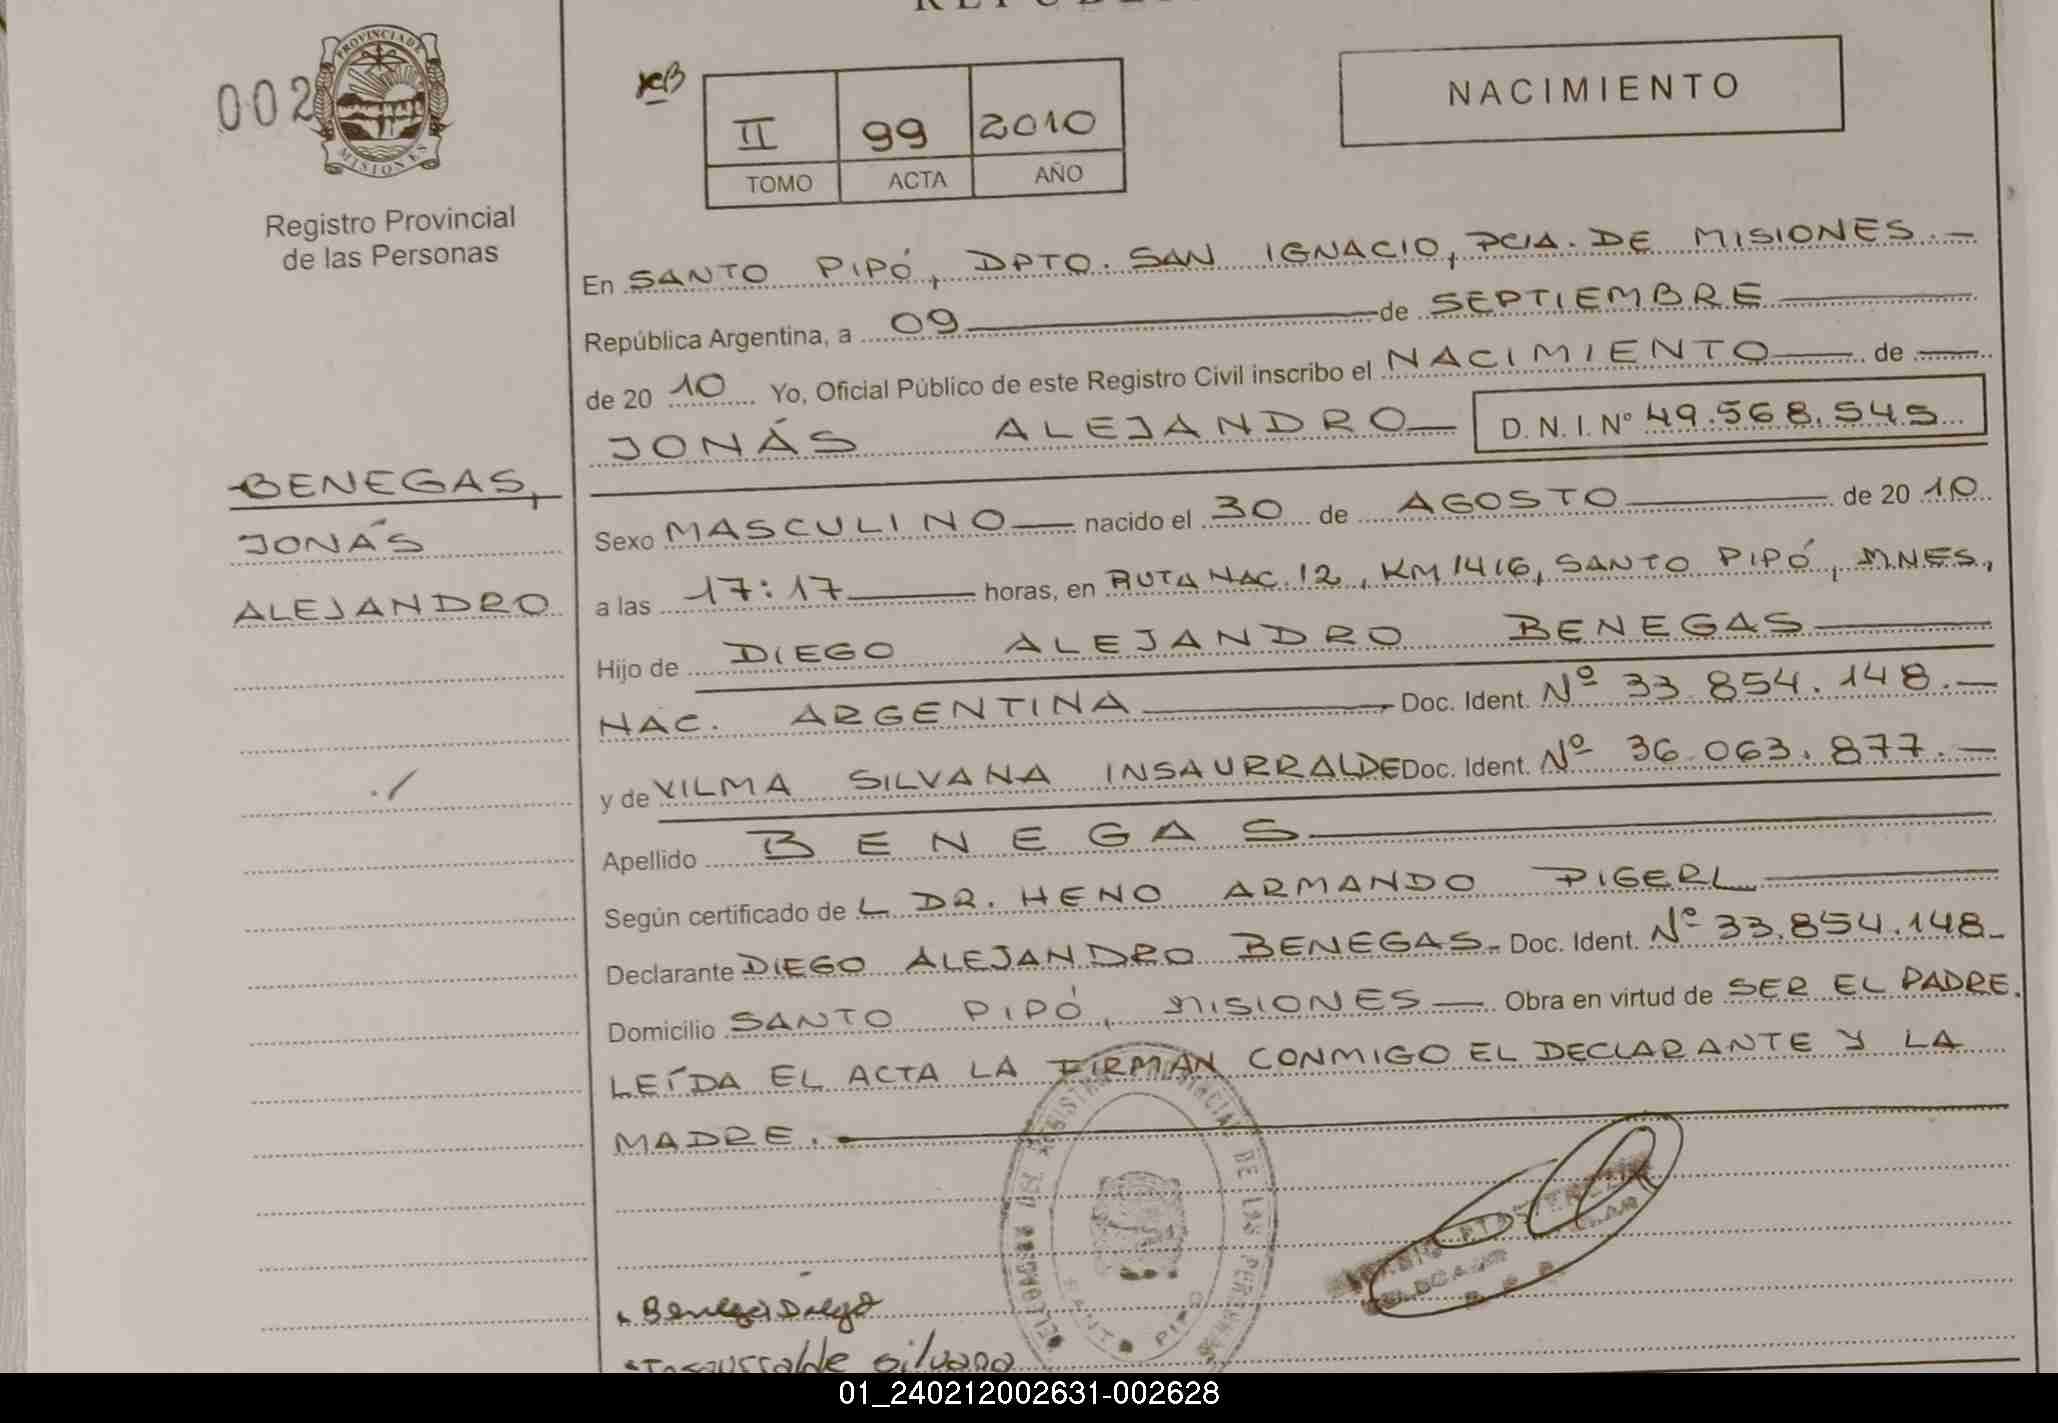 002
PROVINCIA DE
MISIONES
Registro Provincial
de las Personas
II 99 2010
TOMO ACTA AÑO
NACIMIENTO
En SANTO PIPÓ, DPTO. SAN IGNACIO, PCIA. DE MISIONES.-
República Argentina, a 09 de SEPTIEMBRE
de 20 10 Yo, Oficial Público de este Registro Civil inscribo el NACIMIENTO de
JONÁS ALEJANDRO D.N.I. Nº 49.568.545
BENEGAS,
JONÁS
ALEJANDRO
Sexo MASCULINO nacido el 30 de AGOSTO de 20 10
a las 17:17 horas, en RUTA NAC. 12, KM 1416, SANTO PIPÓ, MNES,
Hijo de DIEGO ALEJANDRO BENEGAS
NAC. ARGENTINA Doc. Ident. Nº 33.854.148.-
y de VILMA SILVANA INSAURRALDE Doc. Ident. Nº 36.063.877.-
Apellido BENEGAS
Según certificado de L DR. HENO ARMANDO PIGERL
Declarante DIEGO ALEJANDRO BENEGAS.- Doc. Ident. Nº 33.854.148-
Domicilio SANTO PIPÓ, MISIONES Obra en virtud de SER EL PADRE.
LEÍDA EL ACTA LA FIRMAN CONMIGO EL DECLARANTE Y LA
MADRE.
DE LAS
SANTO PIPO
Benegas Diego
Insaurralde silvana
01_240212002631-002628